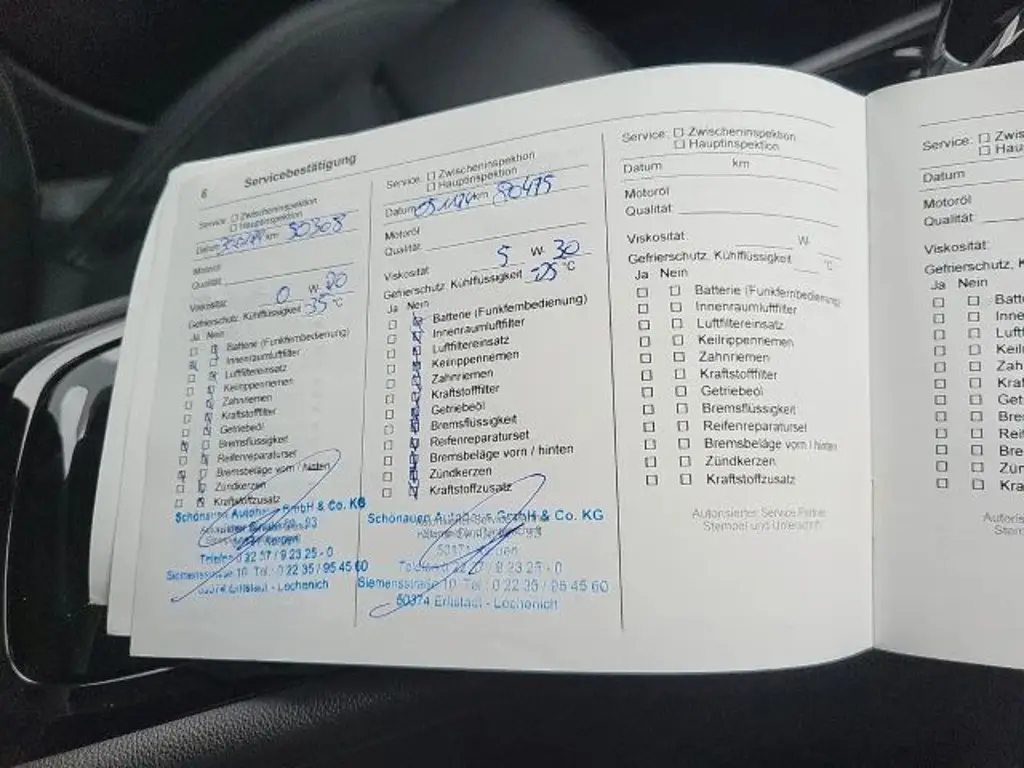 6 Servicebestätigung
Service: ☐ Zwischeninspektion
☐ Hauptinspektion
Datum km 50308
Motoröl
Qualität:
Viskosität: 0 W- 20
Gefrierschutz, Kühlflüssigkeit -35 °C
Ja Nein
Batterie (Funkfernbedienung)
Innenraumluftfilter
Luftfiltereinsatz
Keilrippenriemen
Zahnriemen
Kraftstofffilter
Getriebeöl
Bremsflüssigkeit
Reifenreparaturset
Bremsbeläge vorn / hinten
Zündkerzen
Kraftstoffzusatz
Schönauen Autohaus GmbH & Co. KG
Telefon 0 22 37 / 9 23 25 - 0
Siemensstraße 10 Tel.: 0 22 35 / 95 45 60
50374 Erftstadt - Lechenich
Service: ☐ Zwischeninspektion
☐ Hauptinspektion
Datum km 80475
Motoröl
Qualität:
Viskosität: 5 W- 30
Gefrierschutz, Kühlflüssigkeit -25 °C
Ja Nein
Batterie (Funkfernbedienung)
Innenraumluftfilter
Luftfiltereinsatz
Keilrippenriemen
Zahnriemen
Kraftstofffilter
Getriebeöl
Bremsflüssigkeit
Reifenreparaturset
Bremsbeläge vorn / hinten
Zündkerzen
Kraftstoffzusatz
Schönauen Autohaus GmbH & Co. KG
Telefon 0 22 37 / 9 23 25 - 0
Siemensstraße 10 Tel.: 0 22 35 / 95 45 60
50374 Erftstadt - Lechenich
Service: ☐ Zwischeninspektion
☐ Hauptinspektion
Datum km
Motoröl
Qualität:
Viskosität: W-
Gefrierschutz, Kühlflüssigkeit °C
Ja Nein
☐ ☐ Batterie (Funkfernbedienung)
☐ ☐ Innenraumluftfilter
☐ ☐ Luftfiltereinsatz
☐ ☐ Keilrippenriemen
☐ ☐ Zahnriemen
☐ ☐ Kraftstofffilter
☐ ☐ Getriebeöl
☐ ☐ Bremsflüssigkeit
☐ ☐ Reifenreparaturset
☐ ☐ Bremsbeläge vorn / hinten
☐ ☐ Zündkerzen
☐ ☐ Kraftstoffzusatz
Autorisierter Service Partner
Stempel und Unterschrift
Service: ☐ Zwisch
☐ Hau
Datum
Motoröl
Qualität:
Viskosität:
Gefrierschutz, K
Ja Nein
☐ ☐ Batt
☐ ☐ Inne
☐ ☐ Luft
☐ ☐ Keil
☐ ☐ Zah
☐ ☐ Kra
☐ ☐ Get
☐ ☐ Bre
☐ ☐ Rei
☐ ☐ Bre
☐ ☐ Zün
☐ ☐ Kra
Autoris
Stem